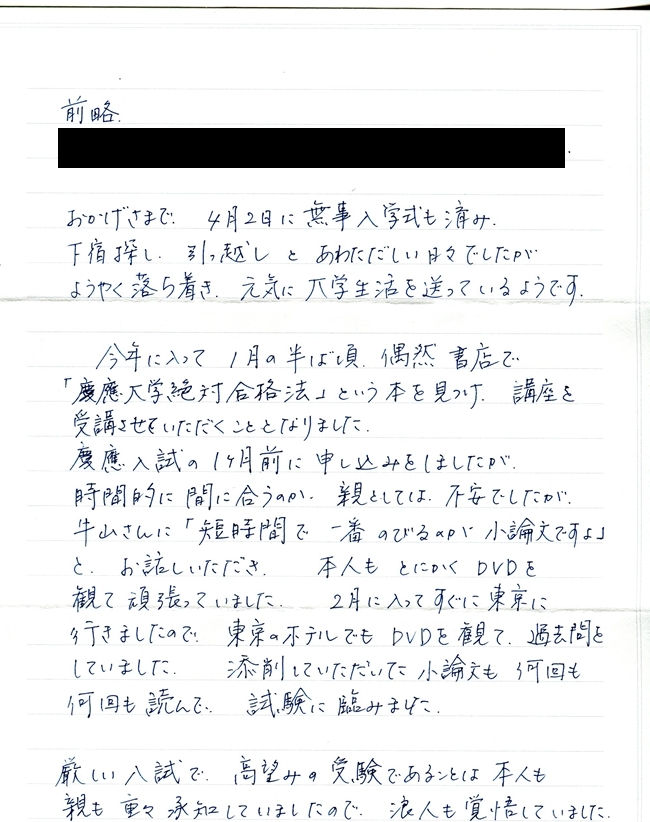 前略.
おかげさまで、4月2日に無事入学式も済み、
下宿探し、引っ越しとあわただしい日々でしたが
ようやく落ち着き、元気に大学生活を送っているようです。
今年に入って1月の半ば頃、偶然書店で
「慶應大学絶対合格法」という本を見つけ、講座を
受講させていただくこととなりました。
慶應入試の1ヶ月前に申し込みをしましたが、
時間的に間に合うのか、親としては、不安でしたが、
牛山さんに「短時間で一番のびるのが小論文ですよ」
と、お話しいただき、本人もとにかくDVDを
観て頑張っていました。2月に入ってすぐに東京に
行きましたので、東京のホテルでもDVDを観て、過去問を
していました。添削していただいた小論文も何回も
何回も読んで、試験に臨みました。
厳しい入試で、高望みの受験であることは本人も
親も重々承知していましたので、浪人も覚悟していました。